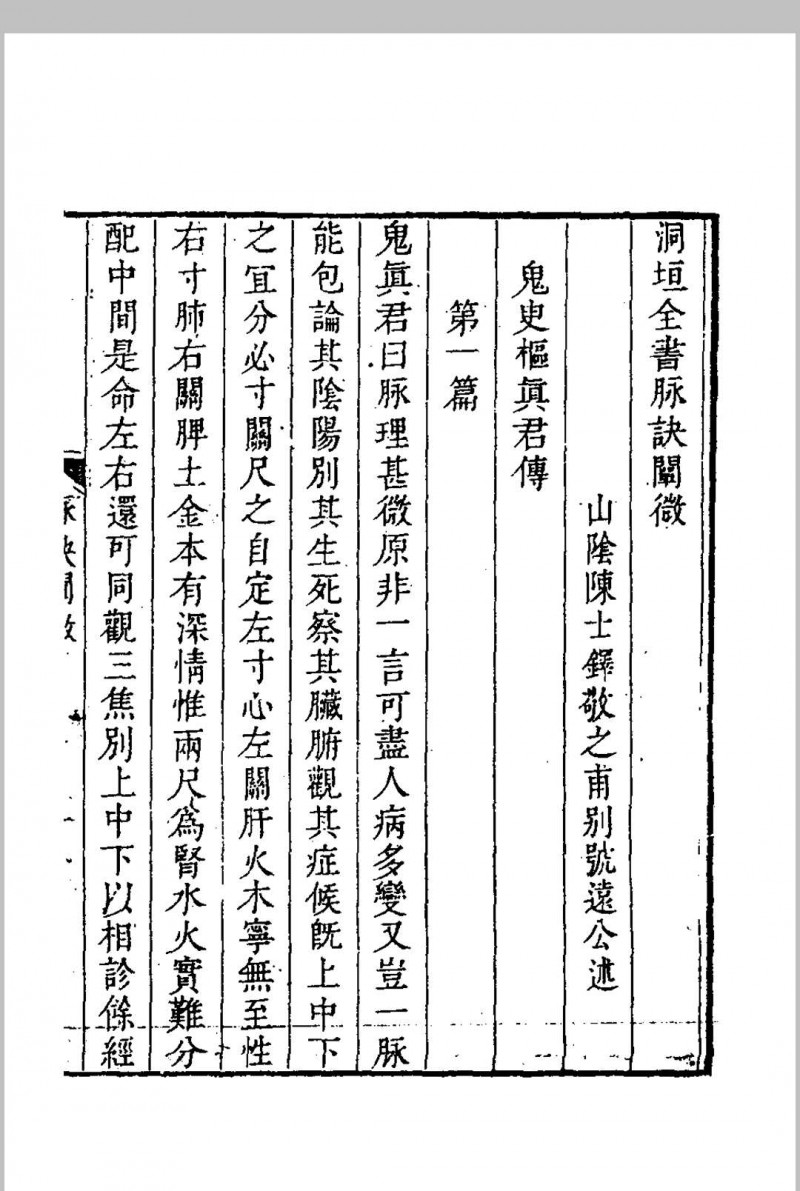 洞垣全書脉訣闡微
山陰陳士鐸敬之甫别號遠公述
鬼史樞眞君傳
第一篇
鬼眞君曰脉理甚微原非一言可盡人病多變又豈一脉
能包論其陰陽別其生死察其臟腑觀其症候旣上中下
之宜分必寸關尺之自定左寸心左關肝火木寧無至性
右寸肺右關脾土金本有深情惟兩尺爲腎水火實難分
配中間是命左右還可同觀三焦別上中下以相診餘經